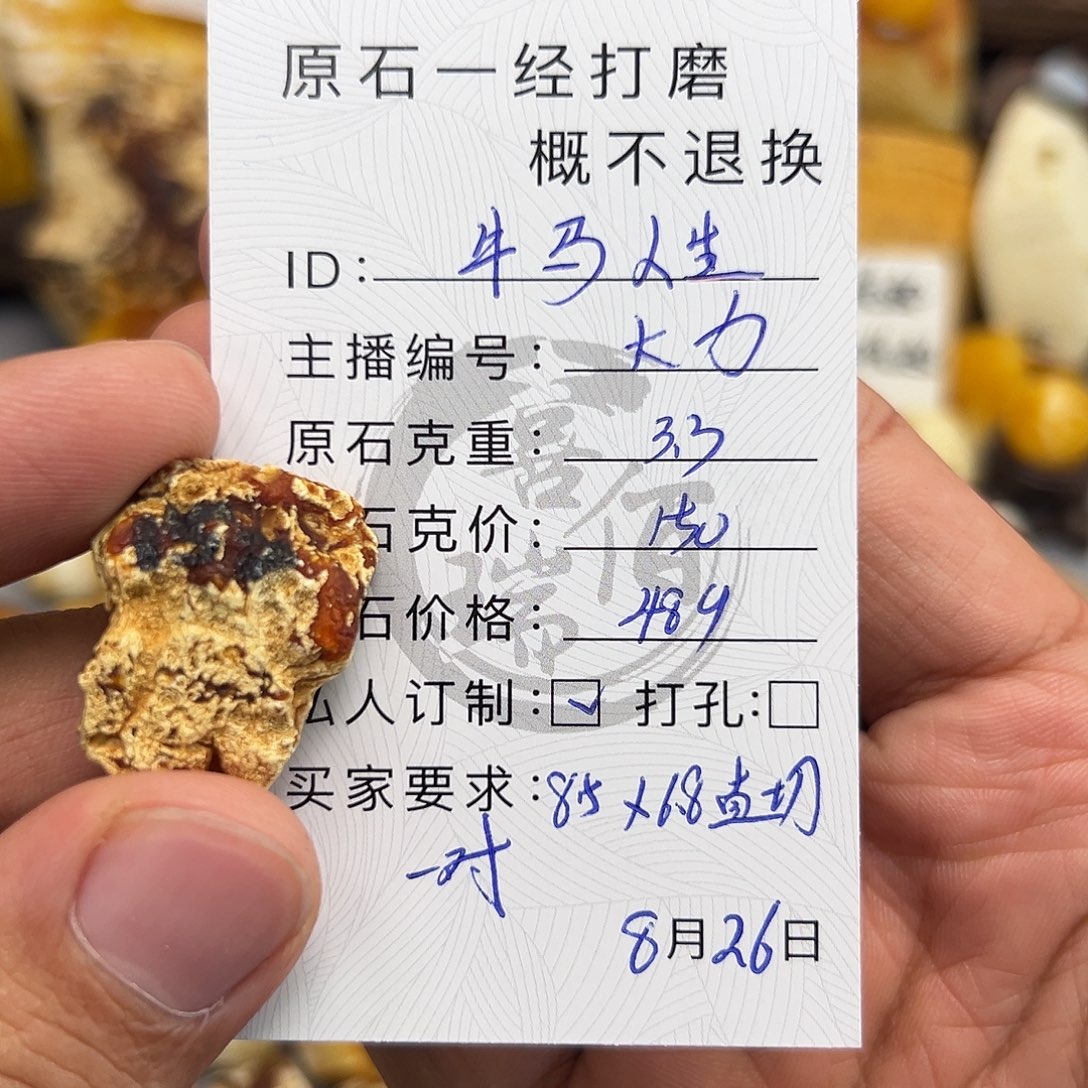 原石一经打磨
概不退换
ID:牛马人生
主播编号:大力
原石克重:3.3
石克价:150
石价格:489
私人订制:☑ 打孔:☐
买家要求:8.5×6.8直切
一对
8月26日
喜佰瑞